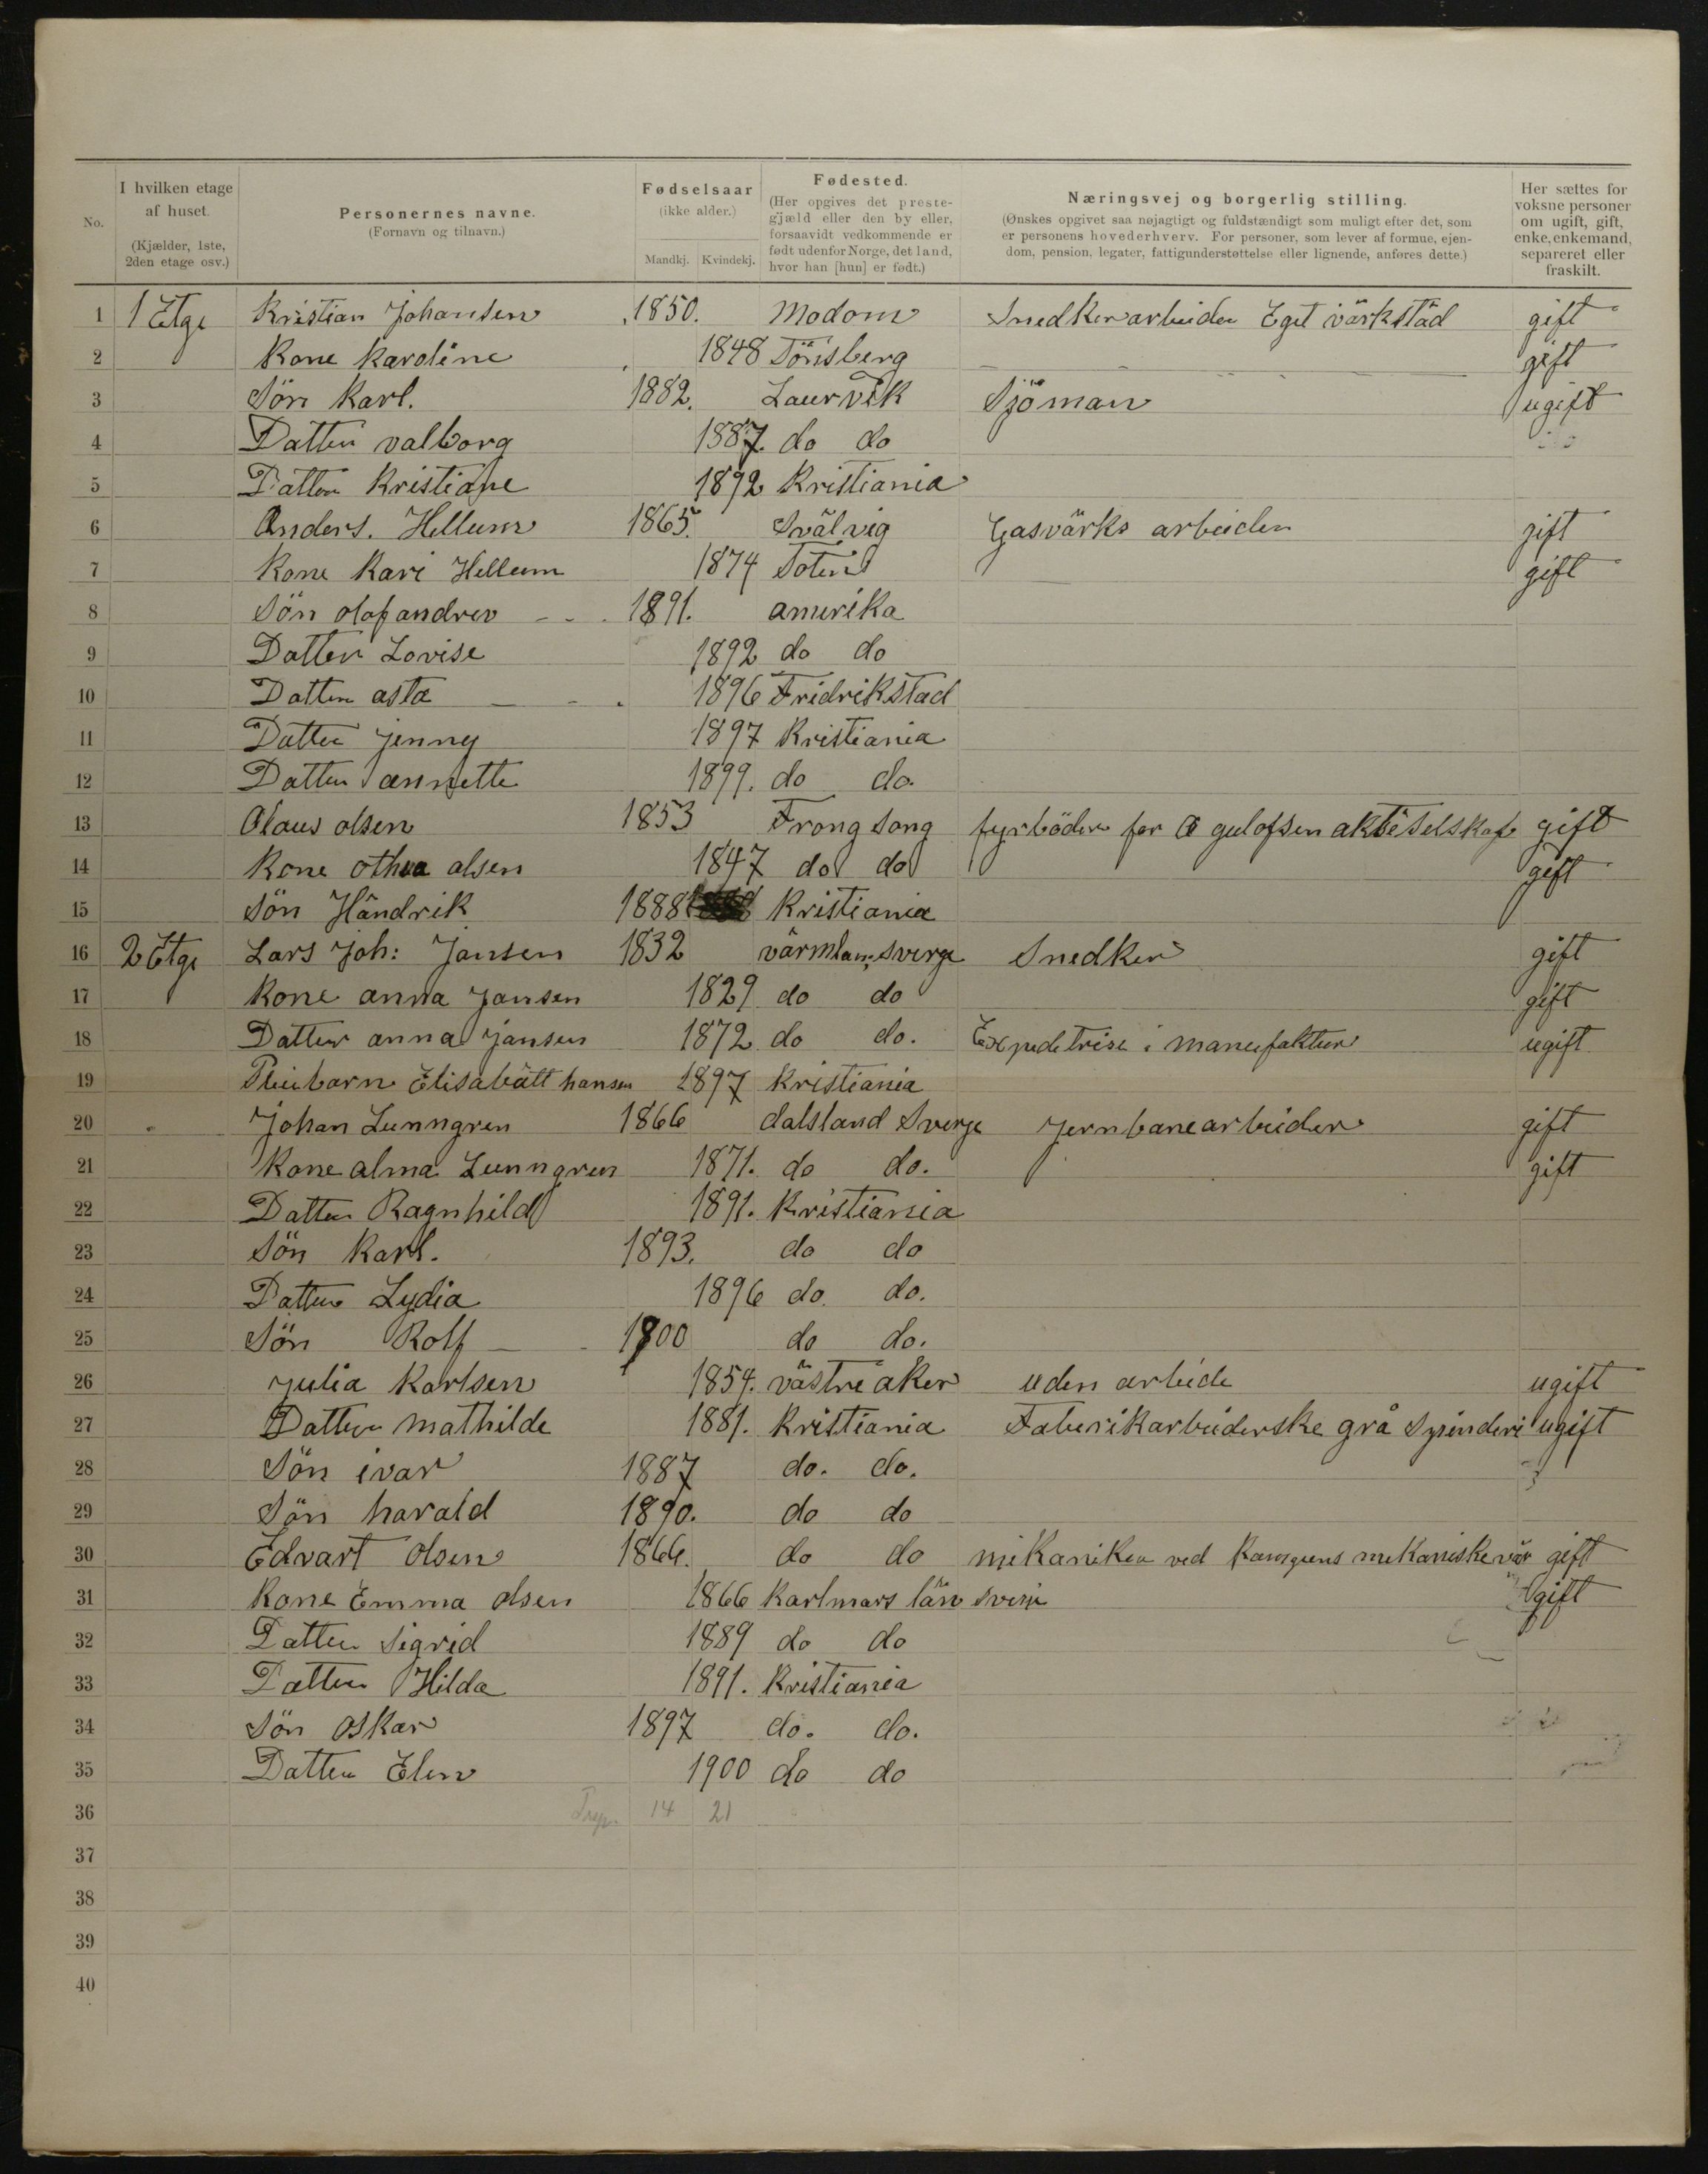 No.
I hvilken etage
af huset.
(Kjælder, 1ste,
2den etage osv.)
Personernes navne.
(Fornavn og tilnavn.)
Fødselsaar
(ikke alder.)
Mandkj. Kvindekj.
Fødested.
(Her opgives det preste-
gjæld eller den by eller,
forsaavidt vedkommende er
født udenfor Norge, det land,
hvor han [hun] er født.)
Næringsvej og borgerlig stilling.
(Ønskes opgivet saa nøjagtigt og fuldstændigt som muligt efter det, som
er personens hovederhverv. For personer, som lever af formue, ejen-
dom, pension, legater, fattigunderstøttelse eller lignende, anføres dette.)
Her sættes for
voksne personer
om ugift, gift,
enke, enkemand,
separeret eller
fraskilt.
1 1 Etge Kristian Johansen 1850. Modom Snedkerarbeider Eget värkstäd gift
2 Kone Karoline 1848 Tönsberg gift
3 Sön Karl. 1882. Laurvik Sjöman ugift
4 Datter valborg 1887. do do
5 Datter Kristiane 1892 Kristiania
6 Anders. Hellum 1865. Svälvig Gasvärks arbeider gift
7 Kone Kari Hellum 1874 Toten gift
8 Sön olaf andrev 1891. amerika
9 Datter Lovise 1892 do do
10 Datter asta 1896 Fridrikstad
11 Datter Jenny 1897 Kristiania
12 Datter annette 1899. do do.
13 Olaus olsen 1853 Frong Song fyrböder for gulofsen aktiselskap gift
14 Kone olsen 1847 do do gift
15 Sön Händrik 1888 Kristiania
16 2 Etge Lars Joh: Jansen 1832 värmlan, sverge Snedker gift
17 Kone anna Jansen 1829 do do gift
18 Datter anna Jansen 1872 do do. Expeditrise i manufaktur ugift
19 Pleibarn Elisabätt hansen 1897 Kristiania
20 Johan Lunngren 1866 dalsland Sverge Jernbanearbeider gift
21 Kone alma Lunngren 1871. do do. gift
22 Datter Ragnhild 1891. Kristiania
23 Sön Karl. 1893. do do
24 Datter Lydia 1896 do do.
25 Sön Rolf 1900 do do.
26 Julia Karlsen 1854. västre aker uden arbeide ugift
27 Datter mathilde 1881. Kristiania Faberikarbeiderske grå Spinderi ugift
28 Sön ivar 1887 do. do.
29 Sön harald 1890. do do
30 Edvart Olsen 1866. do do mikaniker ved mekaniske vär gift
31 Kone Emma olsen 1866 Karlmars län gift
32 Datter Sigrid 1889 do do
33 Datter Hilda 1891. Kristiania
34 Sön Oskar 1897 do. do.
35 Datter Elen 1900 do do
36 14 21
37
38
39
40